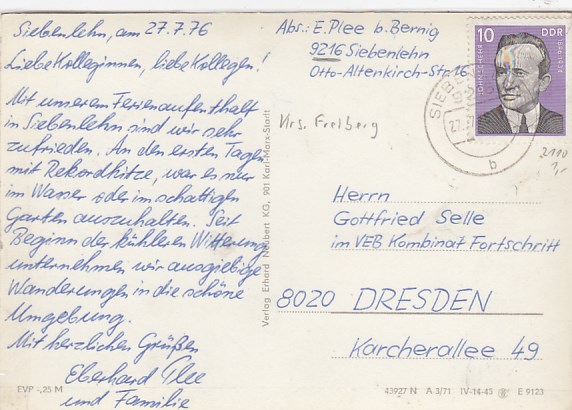 Siebenlehn, am 27.7.76
Liebe Kolleginnen, liebe Kollegen!
Mit unserem Ferienaufenthalt
in Siebenlehn sind wir sehr
zufrieden. An den ersten Tagen
mit Rekordhitze, war es nur
im Wasser oder im schattigen
Garten auszuhalten. Seit
Beginn der kühleren Witterung
unternehmen wir ausgiebige
Wanderungen in die schöne
Umgebung.
Mit herzlichen Grüßen
Eberhard Plee
und Familie
EVP -,25 M
Verlag Erhard Neubert KG, 901 Karl-Marx-Stadt
Abs.: E. Plee b. Bernig
9216 Siebenlehn
Otto-Altenkirch-Str. 16
Krs. Freiberg
10 DDR
SIEB
27.7
b
2110
1,-
Herrn
Gottfried Selle
im VEB Kombinat Fortschritt
8020 DRESDEN
Karcherallee 49
43927 N A 3/71 IV-14-45 E 9123